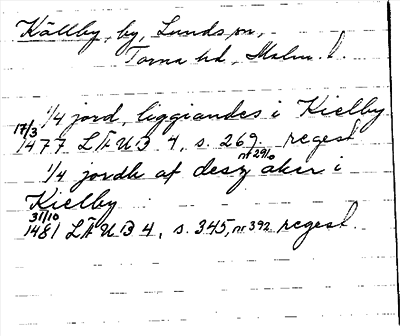 Källby, by, Lunds sn,
Torna hd, Malm. l.
1/4 jord, liggiandes i Kielby
17/3 1477 LÄUB 4, s. 269. nr 290 regest
1/4 jordh af desz aker i
Kielby
31/10 1481 LÄUB 4, s. 345, nr 392 regest.